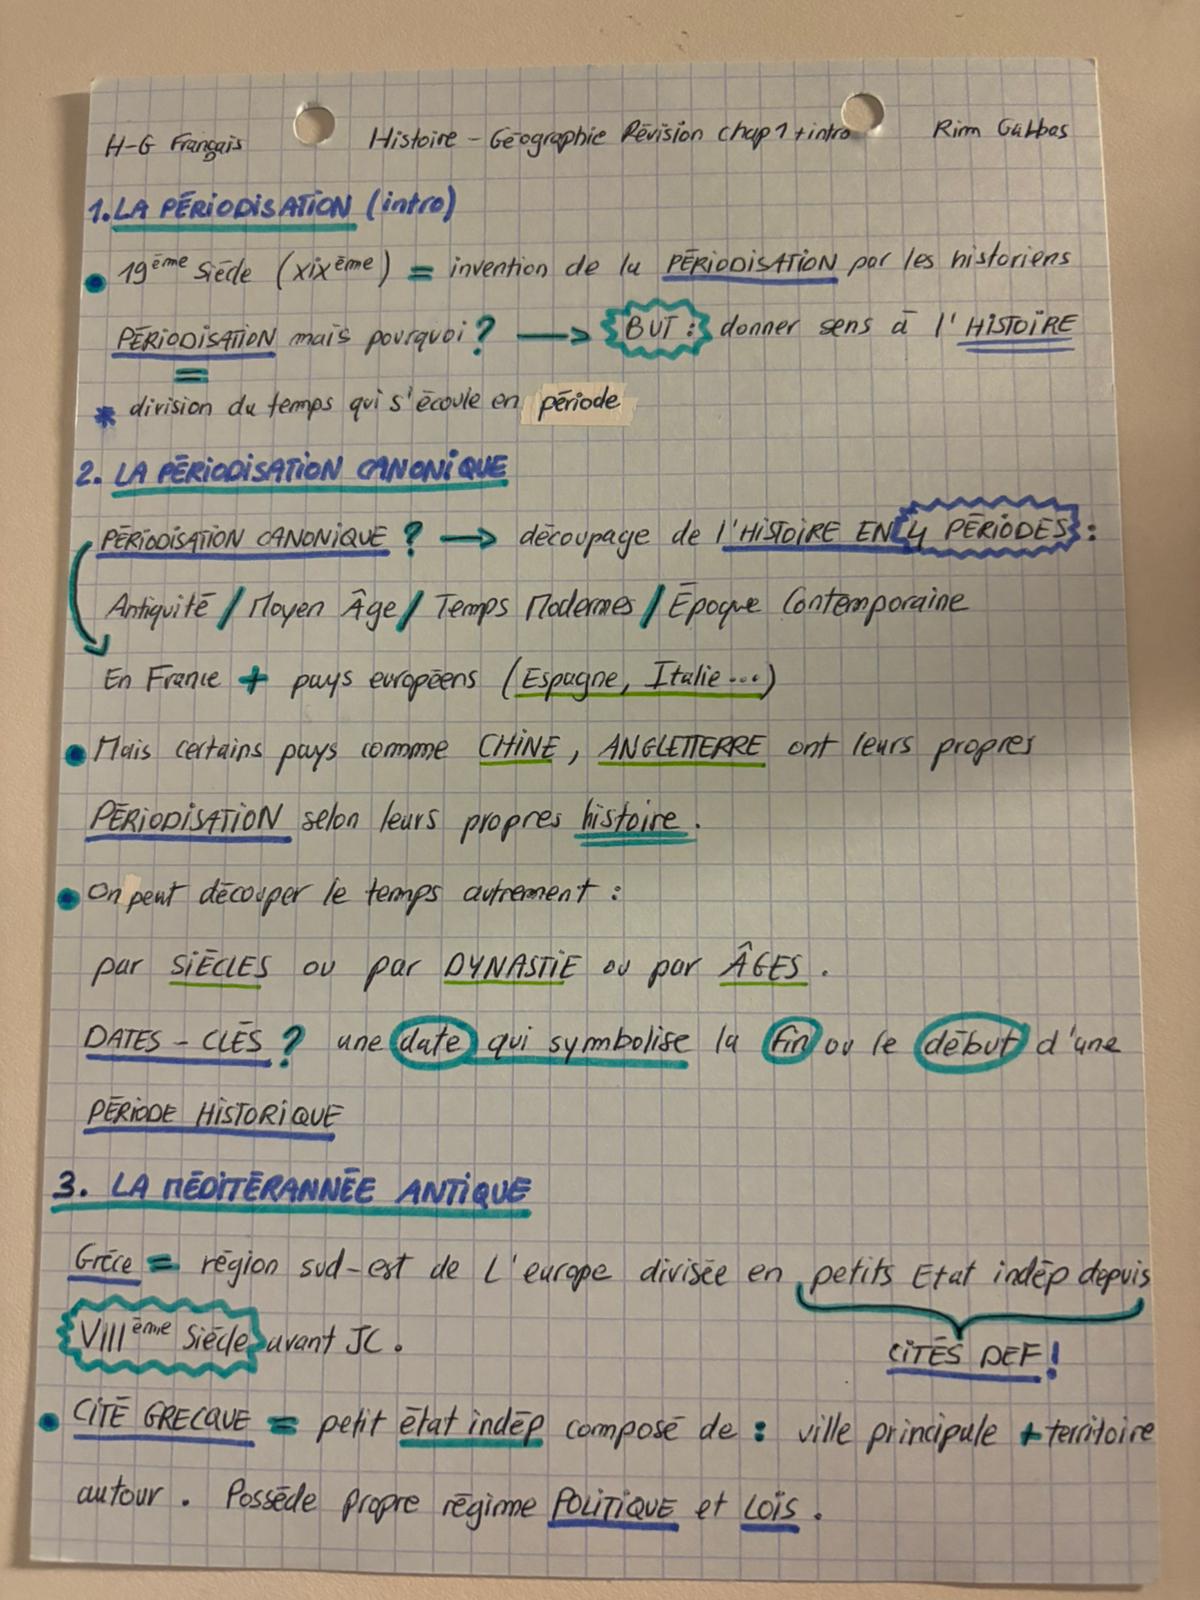 H-G Français Histoire - Géographie Révision chap 1 + intro Rim Gabbas
1. LA PÉRIODISATION (intro)
19ème siècle (XIXème) = invention de la PÉRIODISATION par les historiens
PÉRIODISATION mais pourquoi ? → BUT : donner sens à l'HISTOIRE
=
* division du temps qui s'écoule en période
2. LA PÉRIODISATION CANONIQUE
PÉRIODISATION CANONIQUE ? → découpage de l'HISTOIRE EN 4 PÉRIODES :
Antiquité / Moyen Âge / Temps Modernes / Époque Contemporaine
En France + pays européens (Espagne, Italie...)
Mais certains pays comme CHINE, ANGLETTERRE ont leurs propres
PÉRIODISATION selon leurs propres histoire.
On peut découper le temps autrement :
par SIÈCLES ou par DYNASTIE ou par ÂGES.
DATES - CLÉS ? une date qui symbolise la fin ou le début d'une
PÉRIODE HISTORIQUE
3. LA MÉDITÉRANNÉE ANTIQUE
Grèce = région sud-est de L'europe divisée en petits Etat indép depuis
VIIIème siècle avant JC. CITÉS DEF !
CITÉ GRECQUE = petit état indép composé de : ville principale + territoire
autour. Possède propre régime POLITIQUE et LOIS.